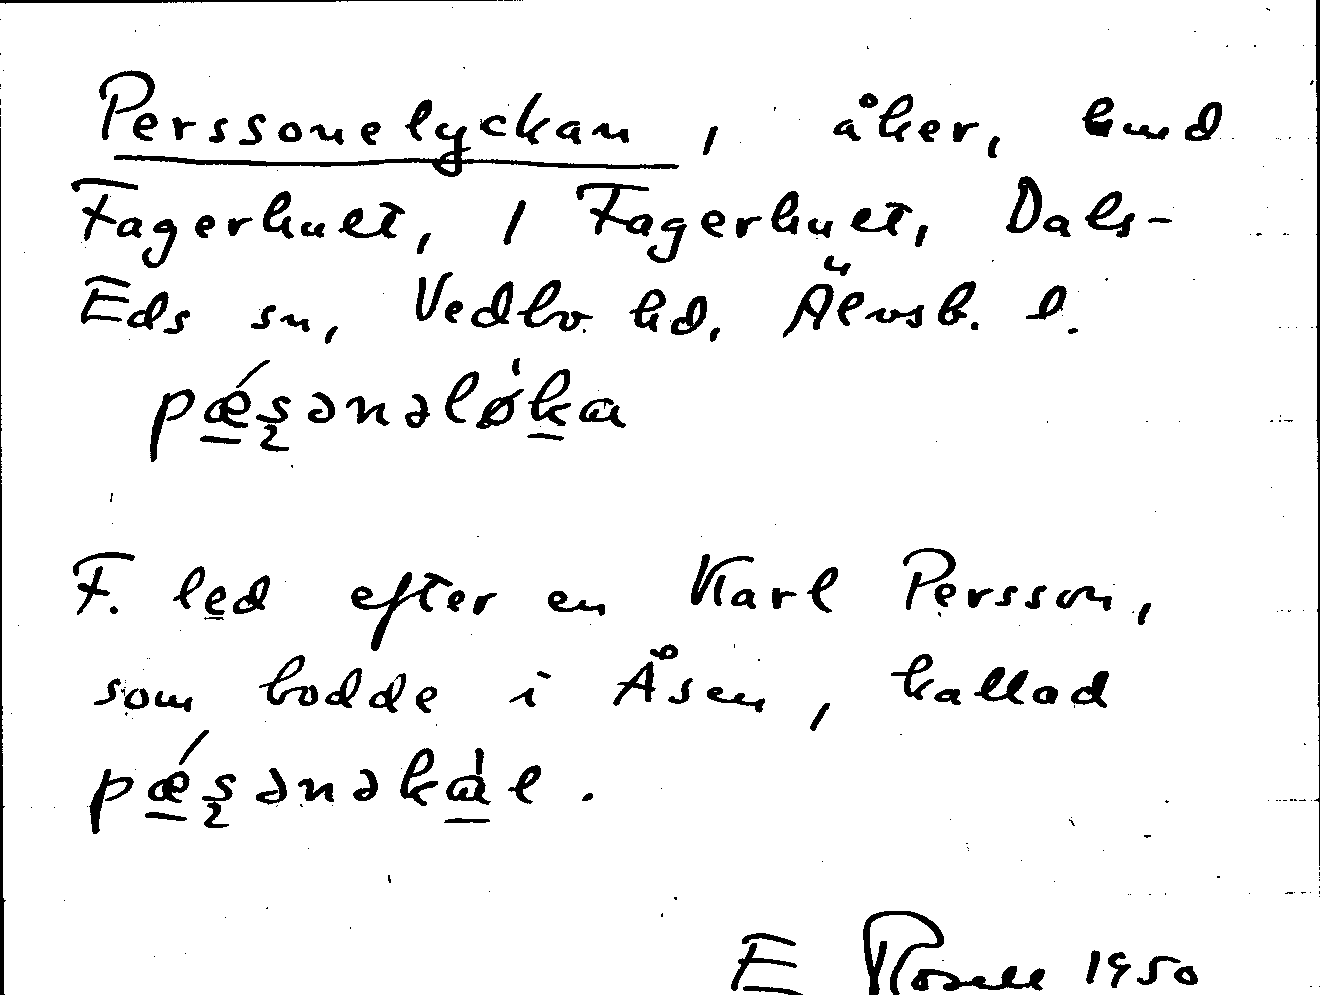 Perssonelyckan, åker, hmd
Fagerhult, 1 Fagerhult, Dals-
Eds sn, Vedbo hd, Älvsb. l.
pǽʂənəlø̀ka
F. led efter en Karl Persson,
som bodde i Åsen, kallad
pǽʂənəkàl.
E Rosell 1950